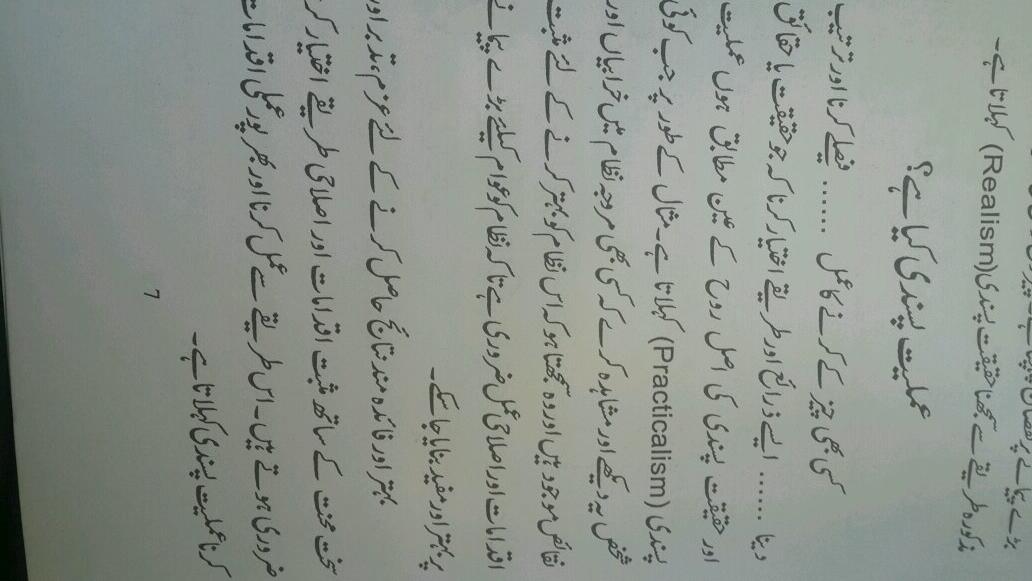 بڑے پیمانے پر نقصان پہنچاتا ہے۔
مذکورہ طریقے سے سمجھنا حقیقت پسندی (Realism) کہلاتا ہے۔
عملیت پسندی کیا ہے؟
کسی بھی چیز کے کرنے کا عمل ...... فیصلے کرنا اور ترتیب
دینا ...... ایسے ذرائع اور طریقے اختیار کرنا کہ جو حقیقت یا حقائق
اور حقیقت پسندی کی اصل روح کے عین مطابق ہوں عملیت
پسندی (Practicalism) کہلاتا ہے۔ مثال کے طور پر جب کوئی
شخص یہ دیکھے اور مشاہدہ کرے کہ کسی بھی مروجہ نظام میں خرابیاں اور
نقائص موجود ہیں اور وہ سمجھتا ہو کہ اس نظام کو بہتر کرنے کے لئے مثبت
اقدامات اور اصلاحی عمل ضروری ہے تاکہ نظام کو عوام کیلئے بڑے پیمانے
پر بہتر اور مفید بنایا جاسکے۔
بہتر اور فائدہ مند نتائج حاصل کرنے کے لئے عزم، تدبر اور
سخت محنت کے ساتھ مثبت اقدامات اور اصلاحی طریقے اختیار کرنا
ضروری ہوتے ہیں۔ اس طریقے سے عمل کرنا اور بھرپور عملی اقدامات
کرنا عملیت پسندی کہلاتا ہے۔
7